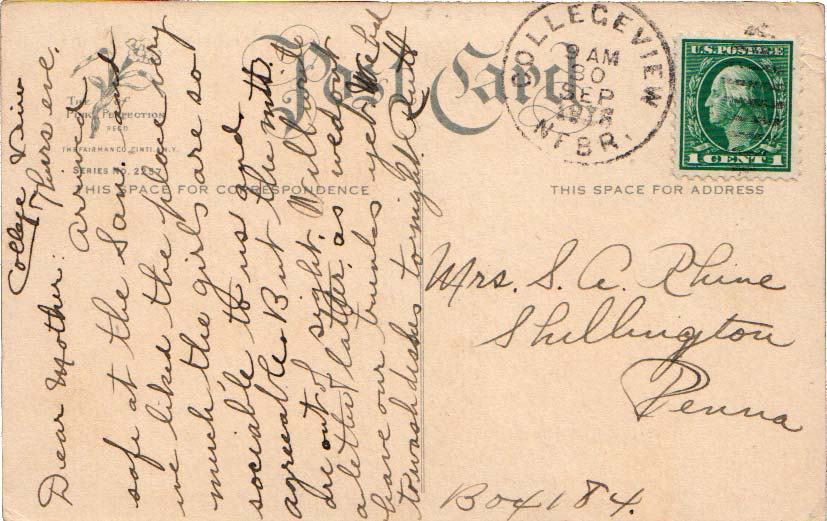 College View
Thurs eve.
Dear Mother: Arrived
safe at the San. and
we liked the place very
much the girls are so
sociable to us and
agreeable. But the mts.
are out of sight. Will write
a letter later, as we don't
have our trunks yet. We had
to wash dishes tonight. Ruth
The
Pink Perfection
FEED
THE FAIRMAN CO. CINTI. & N.Y.
SERIES NO. 2257
Post Card
THIS SPACE FOR CORRESPONDENCE
THIS SPACE FOR ADDRESS
COLLEGEVIEW
9 AM
30
SEP
NEBR.
U.S. POSTAGE
1 CENT 1
Mrs. S. A. Rhine
Shillington
Penna
Box 184.